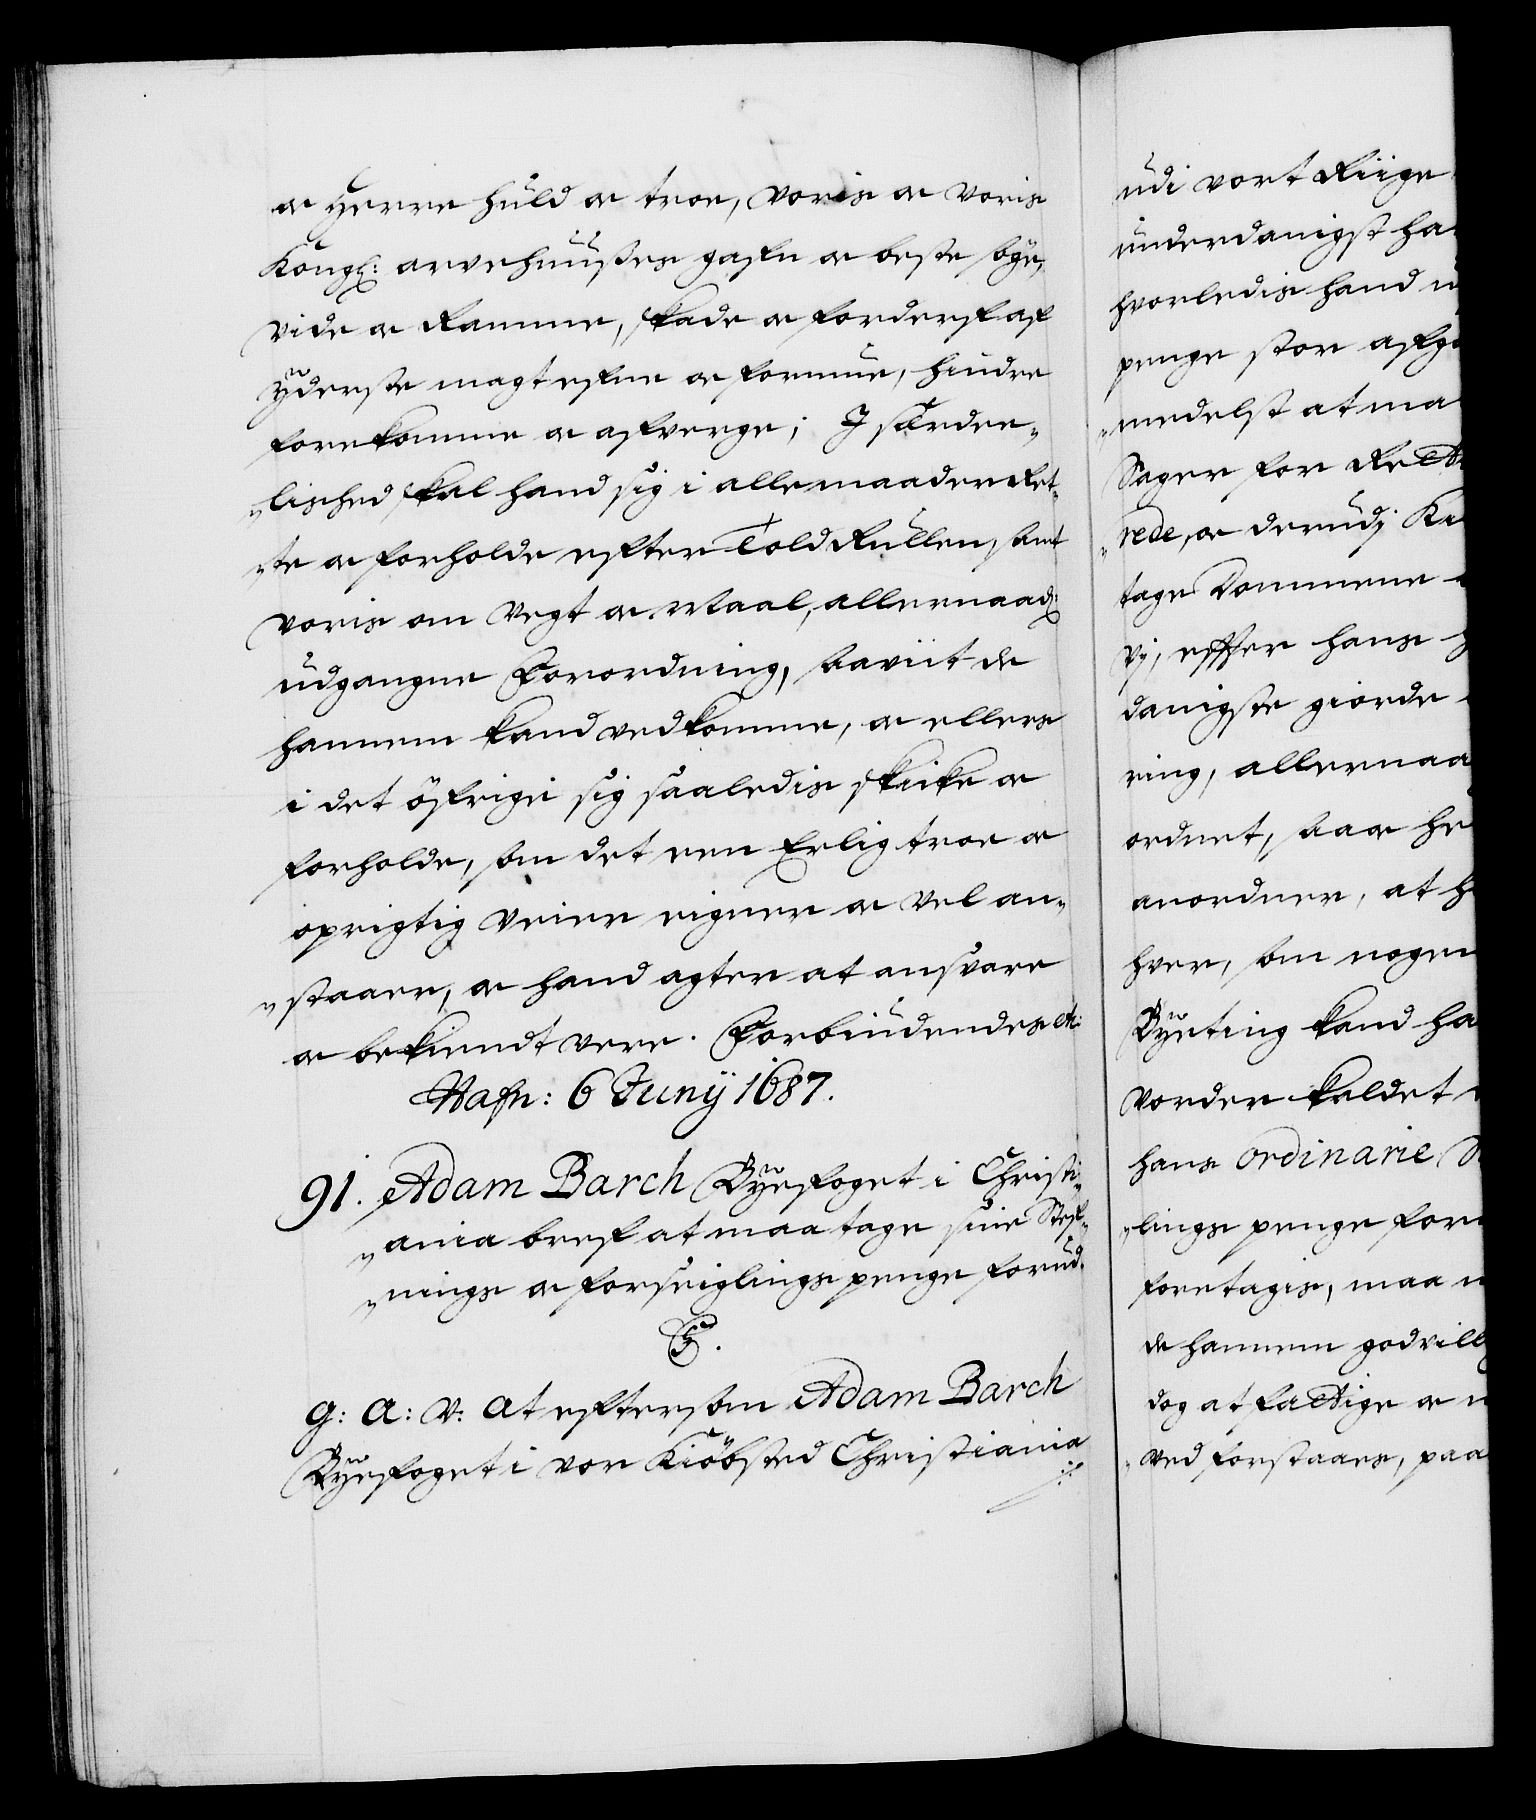 oc Herre huld oc troe, voris oc voris
Kongl: arvehuußes gafn oc beste söge,
vide oc Ramme, skade oc forderf af
yderste magt efne oc formue, hindre
forekomme oc afverge; J særdee-
lished skal hand sig i alle maader Ret-
te oc forholde efter Told Rullen, samt
voris om Vegt oc Maal, allernaad:
udgangne Forordning, saaviit de
hannem kand vedkomme, oc ellers
i det öfrige sig saaledis skicke oc
forholde, som det een Erlig troe oc
oprigtig Veier eigner oc vel an-
staaer, oc hand agter at ansvare
oc bekiendt vere. Forbiudendes etc:
Hafn: 6 Junij 1687.
91. Adam Barch Byefoget i Christi-
ania bref at maa tage sine Stef-
nings oc forseiglings penge forud.
C5.
G: A: V: At eftersom Adam Barch
Byefoget i vor Kiöbsted Christiania
udi vort Riige
underdanigst ha
hvorledis hand
penge stor afg
medelst at ma
Sager for Rett
rede, oc derudj Ka
tage Dommene
Vj, effter hans
danigste giorde
ring, allernaa
ordnet, saa oc he
anordner, at h
hver, som nogen
Byeting kand ha
vorder kaldet
hans ordinarie
lings penge for
foretagis, maa
de hannem godvill
dog at fattige oc
ved forstaaes, paa